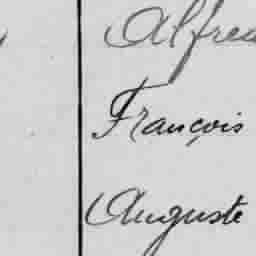 Alfred
François
Auguste